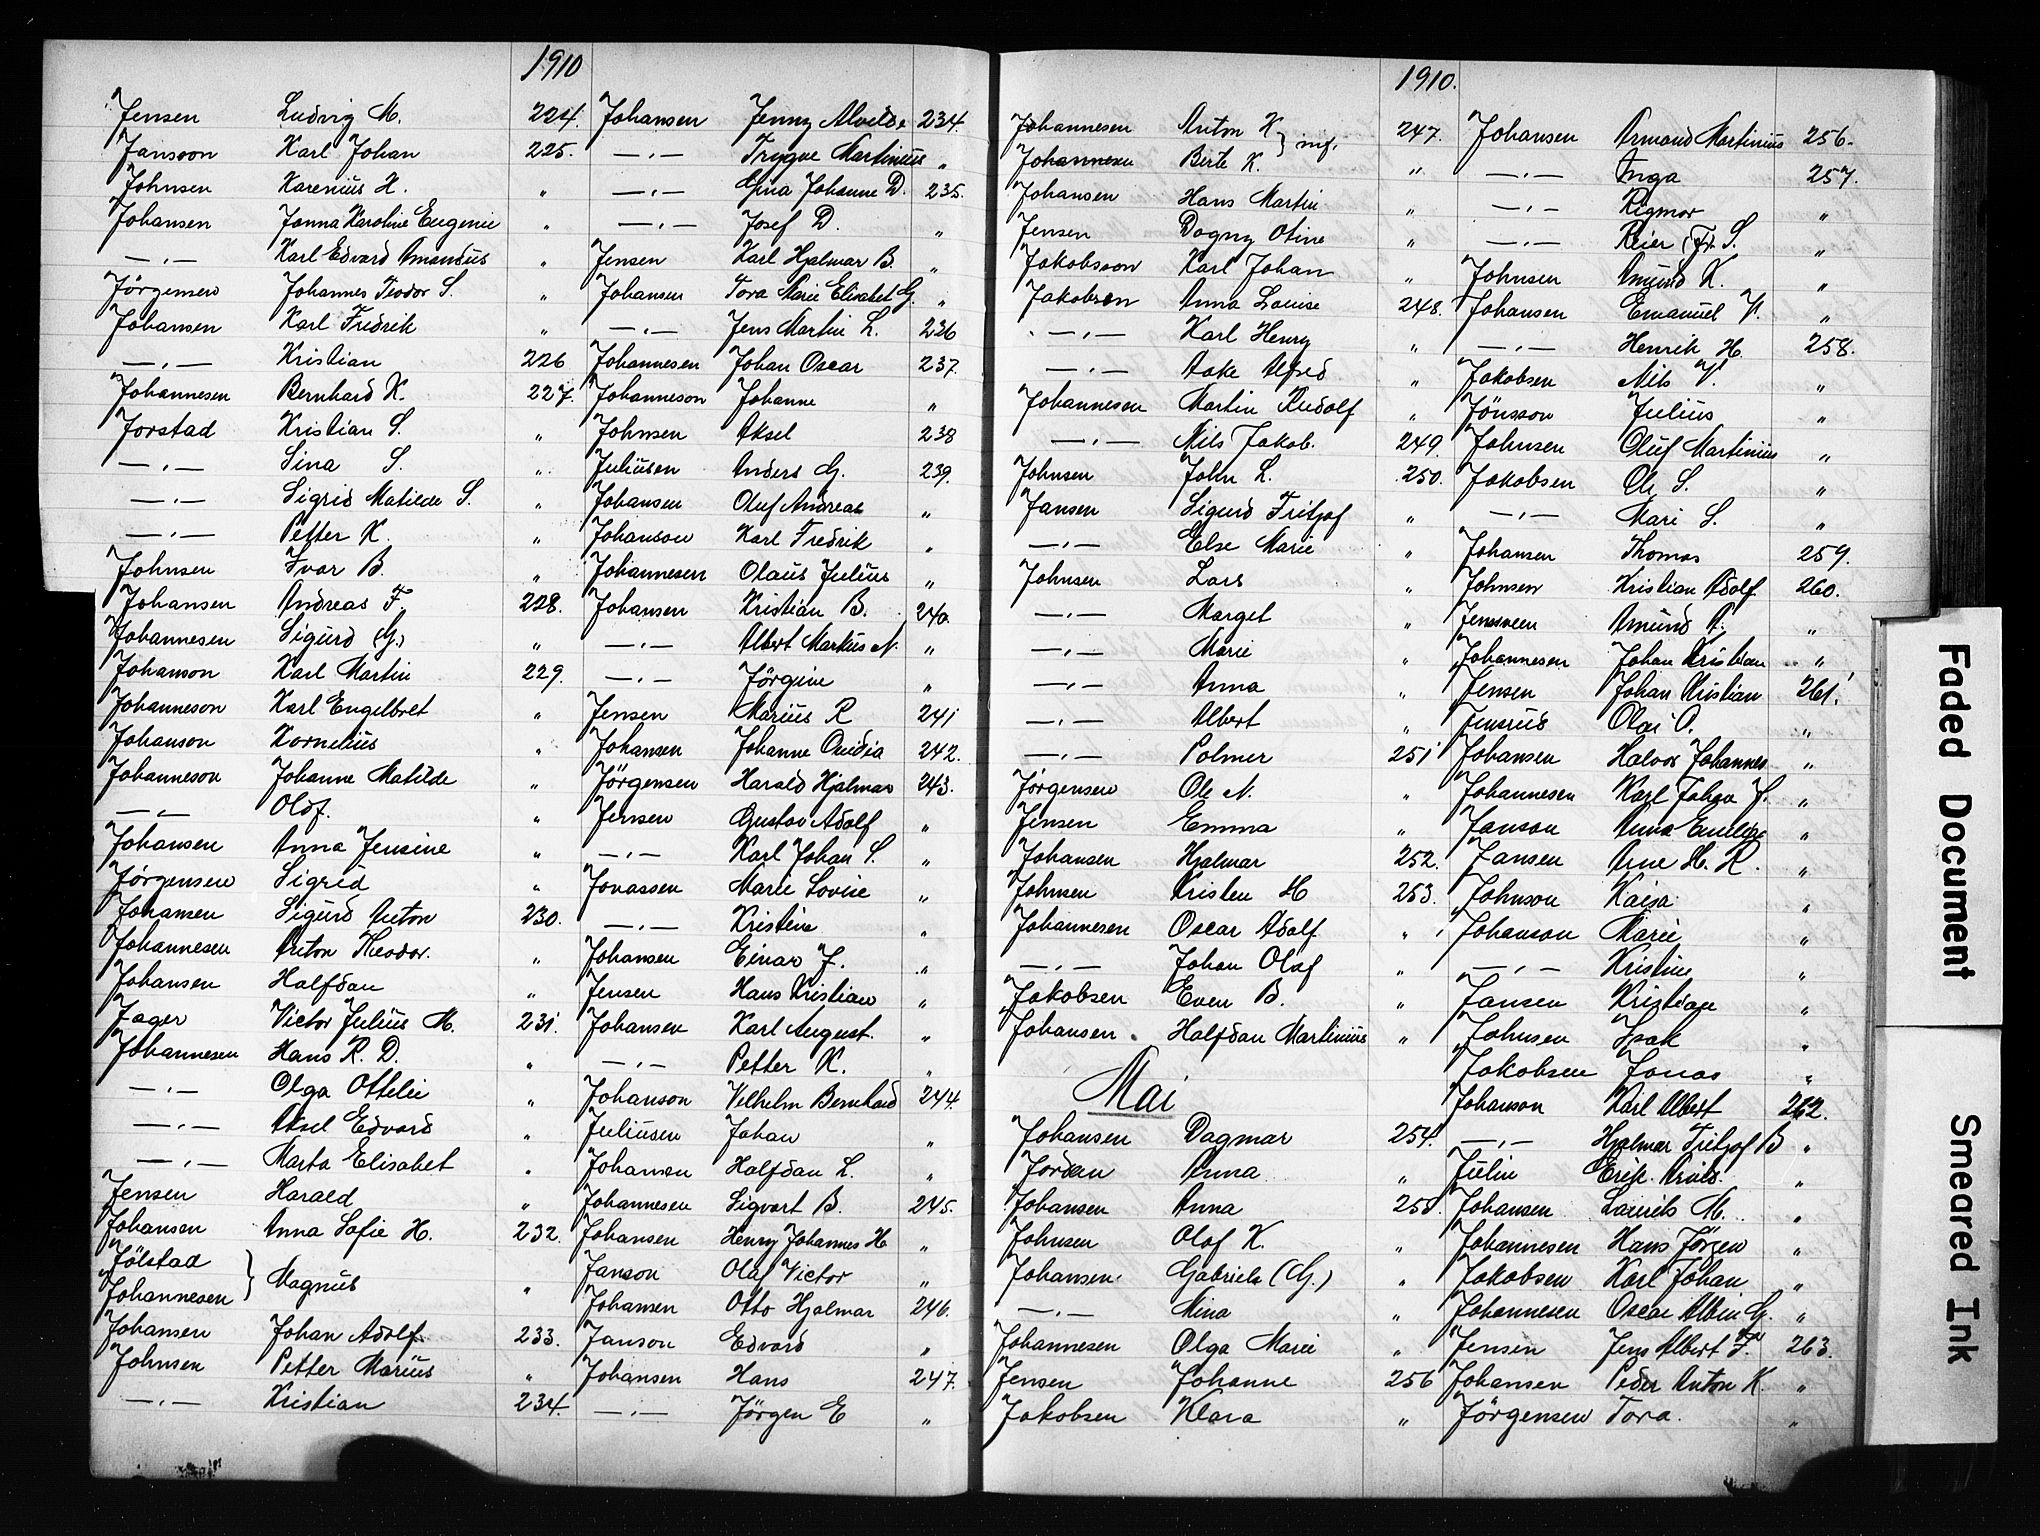 1910
Jensen Ludvig M. 224.
Jansson Karl Johan 225.
Johnsen Karenius H. "
Johansen Janna Karoline Eugenie "
—"— Karl Edvard Amandus "
Jörgensen Johannes Teodor S. "
Johansen Karl Fredrik "
—"— Kristian 226
Johannesen Bernhard K. 227.
Jorstad Kristian S. "
—"— Sina S. "
—"— Sigrid Matilde S. "
—"— Petter K. "
Johnsen Ivar B. "
Johansen Andreas F. 228.
Johannesen Sigurd (G.) "
Johanson Karl Martin 229.
Johanneson Karl Engelbret "
Johanson Kornelius "
Johanneson Johanne Matilde "
—"— Olof. "
Johansen Anna Jensine "
Jörgensen Sigrid "
Johansen Sigurd Anton 230.
Johannesen Anton Theodor. "
Johansen Halfdan "
Jager Victor Julius M. 231.
Johannesen Hans R. D. "
—"— Olga Ottelie "
—"— Aksel Edvard "
—"— Marta Elisabet "
Jensen Harald "
Johansen Anna Sofie H. 232.
Jölstad
Johannesen } Magnus "
Johansen Johan Adolf. 233.
Johnsen Petter Marius "
—"— Kristian 234.
Johansen Jenny Alvilde 234.
—"— Trygve Martinius "
—"— Gina Johanne D. 235.
—"— Josef D. "
Jensen Karl Hjalmar B. "
Johansen Tora Marie Elisabet G. "
—"— Jens Martin L. 236
Johannesen Johan Oscar 237.
Johanneson Johanne "
Johnsen Aksel 238
Juliusen Anders G. 239.
Johansen Oluf Andreas "
Johanson Karl Fredrik "
Johannesen Olaus Julius "
Johansen Kristian B. 240.
—"— Albert Markus N. "
—"— Jörgine "
Jensen Marius R 241
Johansen Johanne Ovidia 242.
Jörgensen Harald Hjalmar 243.
Jensen Gustav Adolf "
—"— Karl Johan S. "
Jonassen Marie Lovise "
—"— Kristine "
Johansen Einar J. "
Jensen Hans Kristian "
Johansen Karl August. "
—"— Petter K. "
Johanson Vilhelm Bernhard 244.
Juliusen Johan "
Johansen Halfdan L. "
Johannesen Sigvart B. 245.
Johansen Henry Johannes H. "
Janson Olaf Victor "
Johansen Otto Hjalmar 246.
Janson Edvard "
Johansen Hans 247.
—"— Jörgen E "
1910.
Johannesen Anton K } 247.
Johannesen Birte K. "
Johansen Hans Martin "
Jensen Dagny Otine "
Jakobsson Karl Johan "
Jakobsen Anna Louise 248.
—"— Karl Henry "
—"— Aake Alfred "
Johannesen Martin Rudolf "
—"— Nils Jakob. 249.
Johnsen John L. 250.
Jansen Sigurd Fritjof "
—"— Else Marie "
Johnsen Lars "
—"— Marget "
—"— Marie "
—"— Anna "
—"— Albert "
—"— Polmer 251
Jørgensen Ole N. "
Jensen Emma "
Johansen Hjalmar 252.
Johnsen Kristen H 253.
Johannesen Oscar Adolf "
—"— Johan Olaf "
Jakobsen Even B. "
Johansen Halfdan Martinius "
Mai
Johansen Dagmar 254.
Jordan Anna "
Johansen Anna 255.
Johnsen Olaf K. "
Johansen Gabriele (G.) "
—"— Mina "
Johannesen Olga Marie "
Jensen Johanne 256
Jakobsen Klara "
Johansen Armand Martinius 256.
—"— Inga 257.
—"— Rigmor "
—"— Reier Fr. S. "
Johnsen Amund K. "
Johansen Emanuel V. "
—"— Henrik H. 258.
Jakobsen Nils V. "
Jönsson Julius "
Johnsen Oluf Martinius "
Jakobsen Ole S. "
—"— Mari S. "
Johansen Thomas 259.
Johnsen Kristian Adolf 260.
Jensveen Amund A. "
Johannesen Johan Kristian "
Jensen Johan Kristian 261.
Jensrud Olai O. "
Johansen Halvor Johannes "
Johannesen Karl Johan J. "
Janson Anna Emelie "
Jansen Arne H. R. "
Johnson Kaisa "
Johanson Marie "
—"— Kristine "
Jansen Kristian "
Johnsen Isak "
Jakobsen Jonas "
Johanson Karl Albert 262.
—"— Hjalmar Fritjof B "
Julin Erik Arvid. "
Johansen Laurits M. "
Johannesen Hans Jörgen "
Jakobsen Karl Johan "
Johannesen Oscar Albin G. "
Jensen Jens Albert F. 263.
Johansen Peder Anton K. "
Jörgensen Tora. "
Faded Document
Smeared Ink